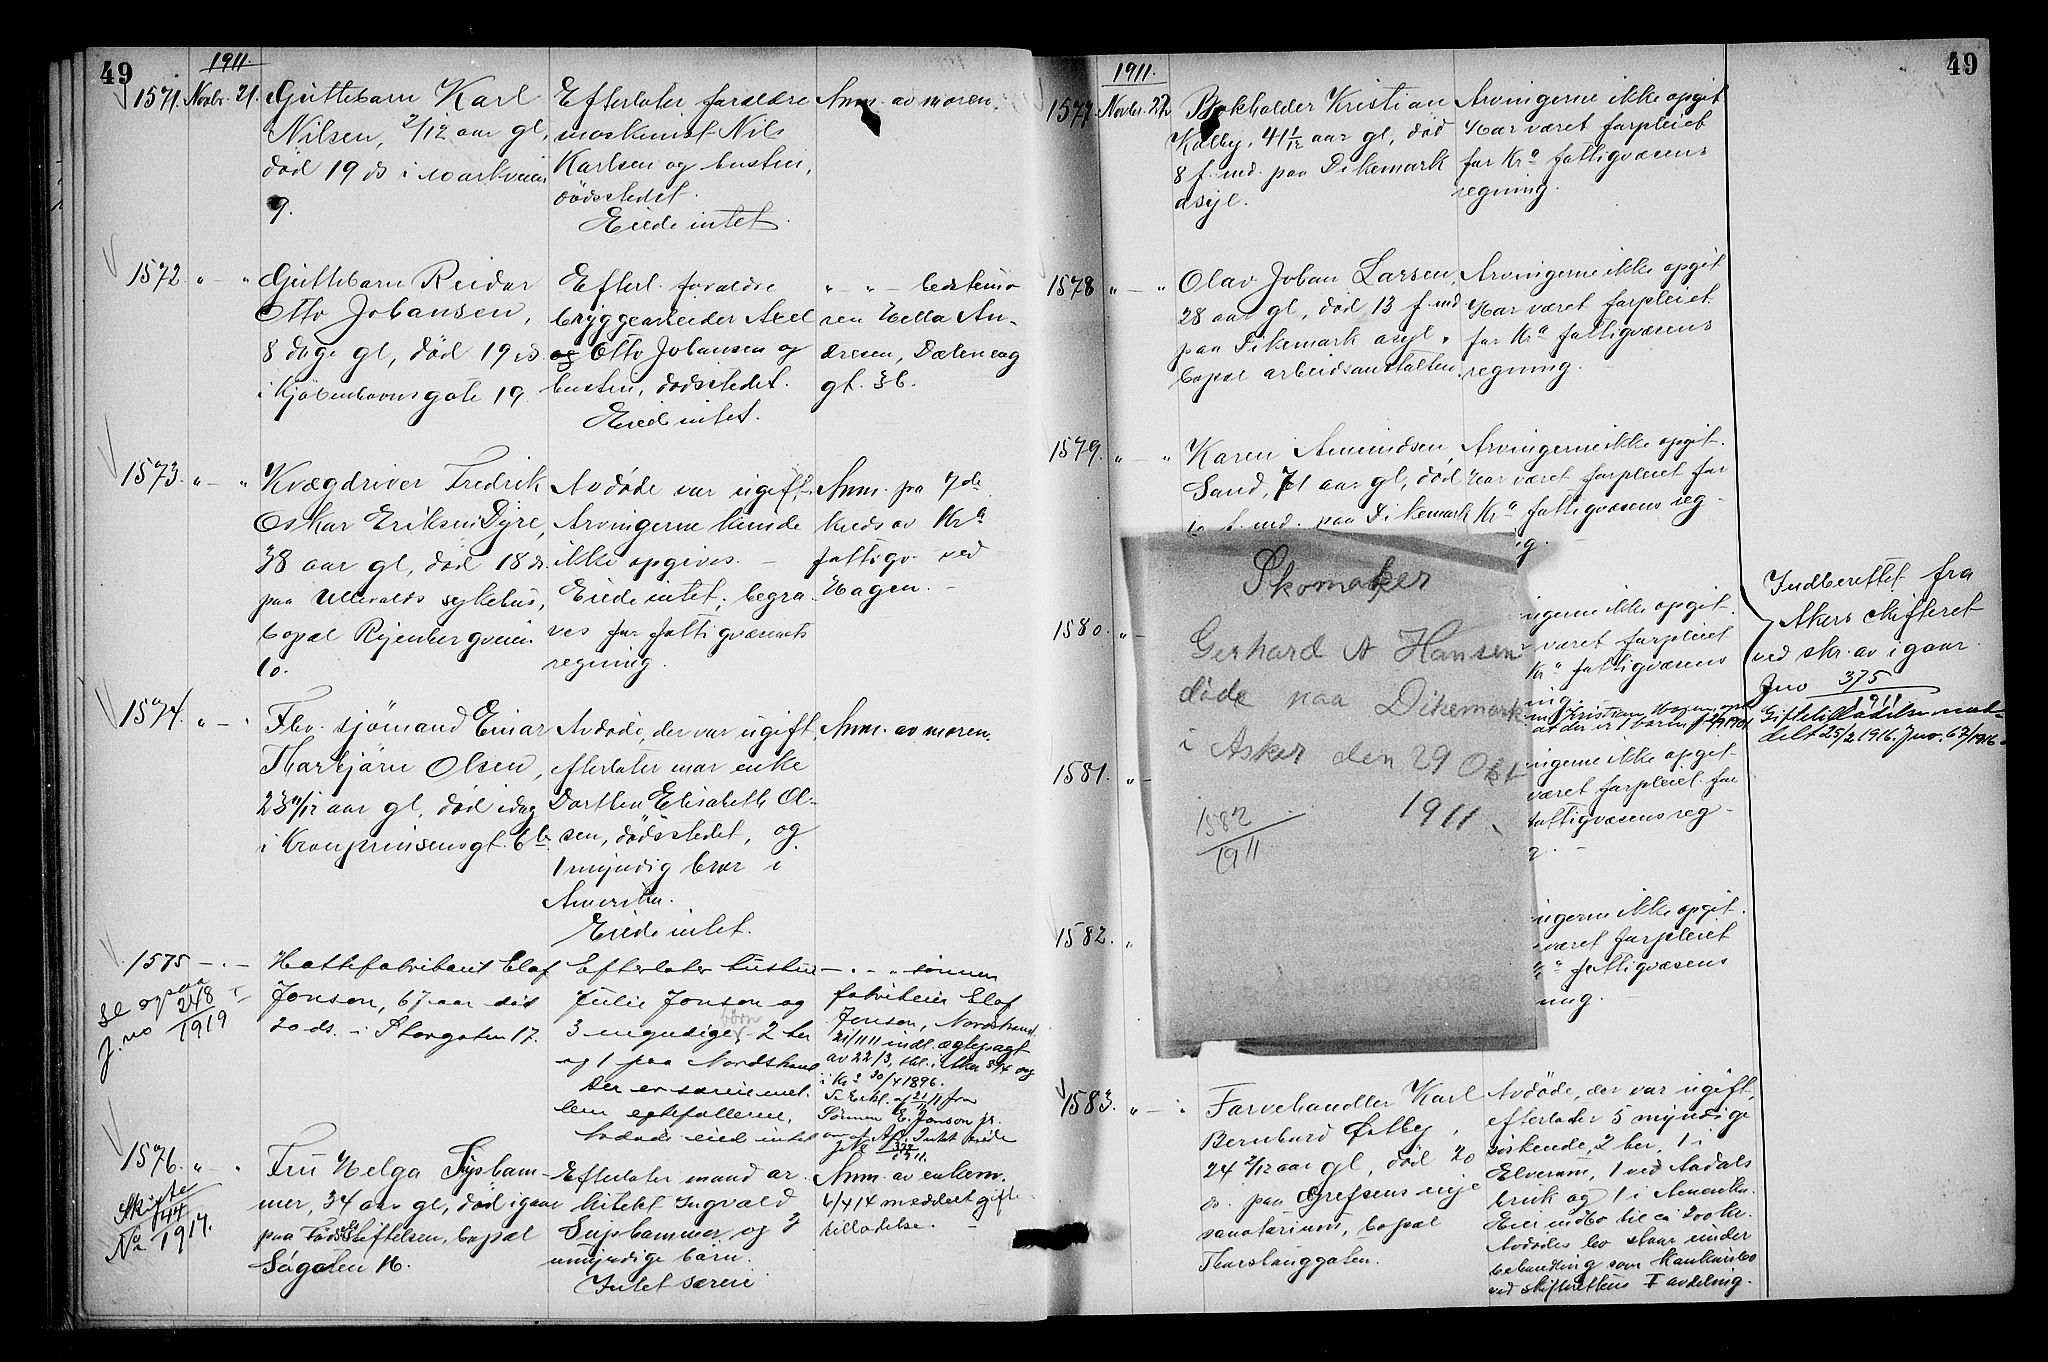 49
1911.
1571. Novbr. 21. Guttebarn Karl
Nilsen, 2/12 aar gl,
död 19 ds i Markveien
9.
Efterlater forældre
maskinist Nils
Karlsen og hustru,
dödsstedet.
Eiede intet.
Anm. av moren.
1572. " — " Guttebarn Reidar
Otto Johansen,
8 dage gl, död 19 ds.
i Kjöbenhavnsgate 19.
Efterl. forældre
bryggearbeider Axel
og Otto Johansen og
hustru, dödsstedet.
Eiede intet.
" — " — bestemo
ren Hella An-
dresen, Dæleneng
gt. 36.
1573. " — " Kvægdriver Fredrik
Oskar Eriksen Dyre,
38 aar gl, död 18 ds.
paa Ullevaals sykehus,
bopæl Ryenbergveien
10.
Avdöde var ugift.
Arvingerne kunde
ikke opgives. —
Eiede intet; begra-
ves for fattigvæsenets
regning.
Anm. fra 7de
kreds av Kra
fattigv. ved
Hagen. —
1574. " — " Fhv. sjömand Einar
Thorbjörn Olsen,
23 11/12 aar gl, död idag
i Kronprinsensgt. 6 b.
Avdöde, der var ugift,
efterlater mor enke
Dorthea Elisabeth Ol-
sen, dödsstedet, og
1 myndig bror i
Amerika.
Eiede intet.
Anm. av moren.
1575 — . — Hattefabrikant Elof
Jonson, 67 aar död
20 ds. i Storgaten 17.
Se ogsaa
J. no 248/1919
Efterlater hustru
Julie Jonson og
3 myndige börn 2 her
og 1 paa Nordstrand
Der er særeie mel-
lem egtefællerne.
Avdöde eied intet
— . — " sönnen
fabrikeier Elof
Jonson, Nordstrand
21/11 11 indl. ægtepagt
av 22/3, tbl. i Aker 8/4 og
i Kra 20/4 1896.
Sönnen E. Jonson jr.
1576. " " Fru Helga Sysham-
mer, 34 aar gl, död igaar
paa FödselsStiftelsen, bopæl
Sögaten 16.
Skifte
No 144/1914.
Efterlater mand ar
kitekt Ingvald
Syshammer og 3
umyndige börn.
Intet særeie
Anm. av enkem.
6/4 14 meddelt gifte-
tilladelse. —
49
1911.
1577. Novbr. 22. Bokholder Kristian
Kolby, 41 1/12 aar gl, död
8 f. md. paa Dikemark
asyl.
Arvingerne ikke opgit
Har været forpleiet
for Kra fattigvæsens
regning.
1578 " — " Olav Johan Larsen,
28 aar gl, död 13 f. md
paa Dikemark asyl,
bopæl arbeidsanstalten.
Arvingerne ikke opgit
Har været forpleiet
for Kra fattigvæsens
regning.
1579. " — " Karen Amundsen,
Sand, 71 aar gl, död
10 f. md. paa Dikemark
Arvingerne ikke opgit.
Har været forpleiet for
Kra fattigvæsens reg-
g.
Skomaker
Gerhard A Hansen
döde paa Dikemark
i Asker den 29 Okt
1911.
1582/1911
1580. " —
ingerne ikke opgit.
været forpleiet
Kra fattigvæsens
ning.
Indberettet fra
Akers skifteret
ved skr. av igaar.
Jno 375/1911
Giftetilladelse med-
delt 25/2 1916. Jno. 67/1916.
1581. " —
ingerne ikke opgit.
været forpleiet for
fattigvæsens reg-
1582. "
ingerne ikke opgit.
været forpleiet
Kra fattigvæsens
ning.
1583. " — " Farvehandler Karl
Bernhard Østby,
24 2/12 aar gl, död 20
ds. paa Grefsens nye
sanatorium, bopæl
Thorshauggaten.
Avdöde, der var ugift,
efterlader 5 myndige
söskende, 2 her, 1 i
Elverum, 1 ved Aadals
bruk og 1 i Amerika.
Eier indbo til ca 200 kr.
Avdödes bo staar under
behandling som konkursbo
ved skifterettens I avdeling.